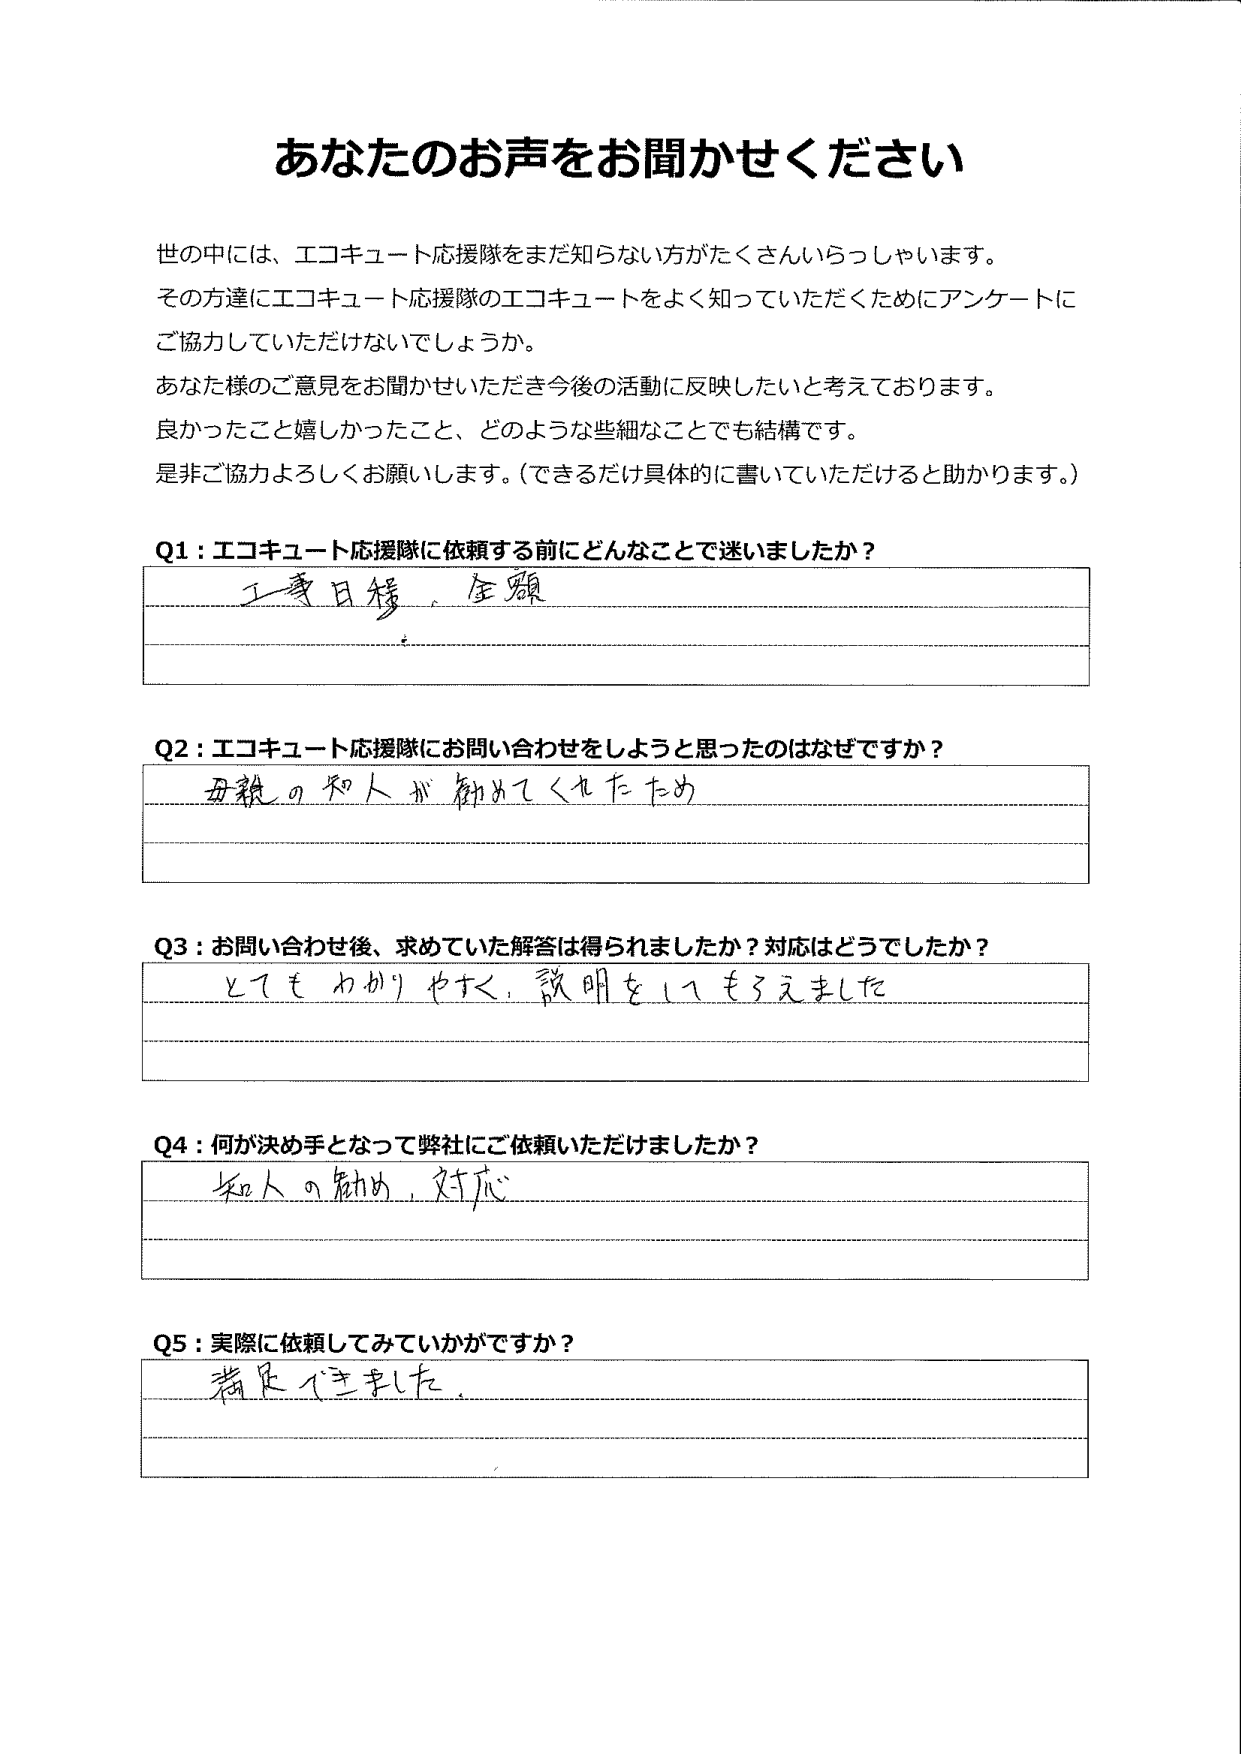 あなたのお声をお聞かせください
世の中には、エコキュート応援隊をまだ知らない方がたくさんいらっしゃいます。
その方達にエコキュート応援隊のエコキュートをよく知っていただくためにアンケートに
ご協力していただけないでしょうか。
あなた様のご意見をお聞かせいただき今後の活動に反映したいと考えております。
良かったこと嬉しかったこと、どのような些細なことでも結構です。
是非ご協力よろしくお願いします。(できるだけ具体的に書いていただけると助かります。)
Q1：エコキュート応援隊に依頼する前にどんなことで迷いましたか？
工事日程、金額
Q2：エコキュート応援隊にお問い合わせをしようと思ったのはなぜですか？
母親の知人が勧めてくれたため
Q3：お問い合わせ後、求めていた解答は得られましたか？対応はどうでしたか？
とてもわかりやすく、説明をしてもらえました
Q4：何が決め手となって弊社にご依頼いただけましたか？
知人の勧め、対応
Q5：実際に依頼してみていかがですか？
満足できました。